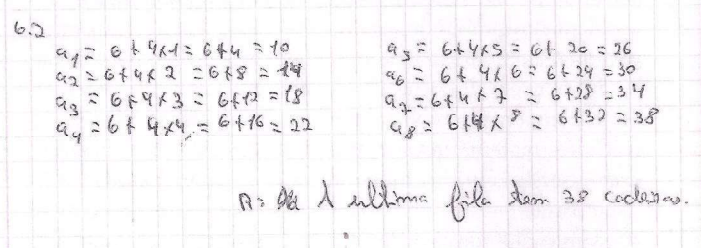 6.2
a1 = 6+4×1 = 6+4 = 10
a2 = 6+4×2 = 6+8 = 14
a3 = 6+4×3 = 6+12 = 18
a4 = 6+4×4 = 6+16 = 22
a5 = 6+4×5 = 6+20 = 26
a6 = 6+4×6 = 6+24 = 30
a7 = 6+4×7 = 6+28 = 34
a8 = 6+4×8 = 6+32 = 38
R: A ultima fila tem 38 cadeiras.